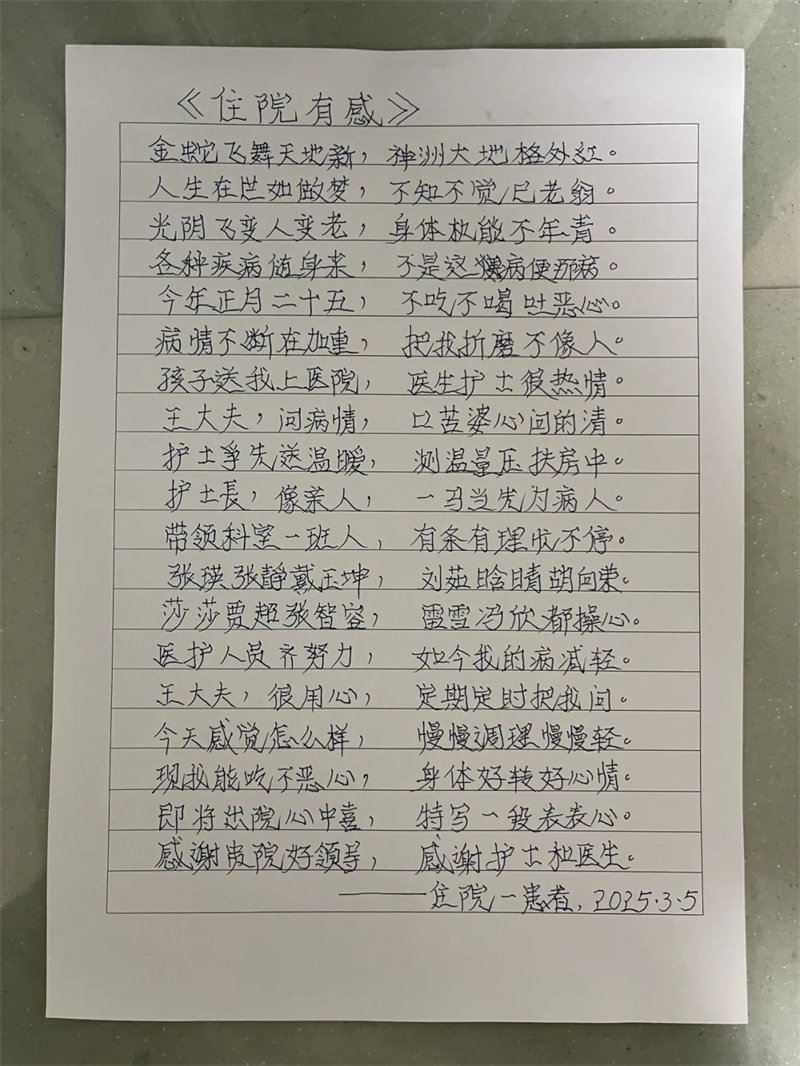 《住院有感》
金蛇飞舞天地新，神洲大地格外红。
人生在世如做梦，不知不觉已老翁。
光阴飞变人变老，身体机能不年青。
各种疾病随身来，不是这病便那病。
今年正月二十五，不吃不喝吐恶心。
病情不断在加重，把我折磨不像人。
孩子送我上医院，医生护士很热情。
王大夫，问病情，口苦婆心问的清。
护士争先送温暖，测温量压扶房中。
护士長，像亲人，一马当先为病人。
带领科室一班人，有条有理忙不停。
张瑛张静戴玉坤，刘茹晗晴胡向荣。
莎莎贾超张智容，雷雪冯欣都操心。
医护人员齐努力，如今我的病减轻。
王大夫，很用心，定期定时把我问。
今天感觉怎么样，慢慢调理慢慢轻。
现我能吃不恶心，身体好转好心情。
即将出院心中喜，特写一段表表心。
感谢贵院好领导，感谢护士和医生。
——住院一患者，2025.3.5